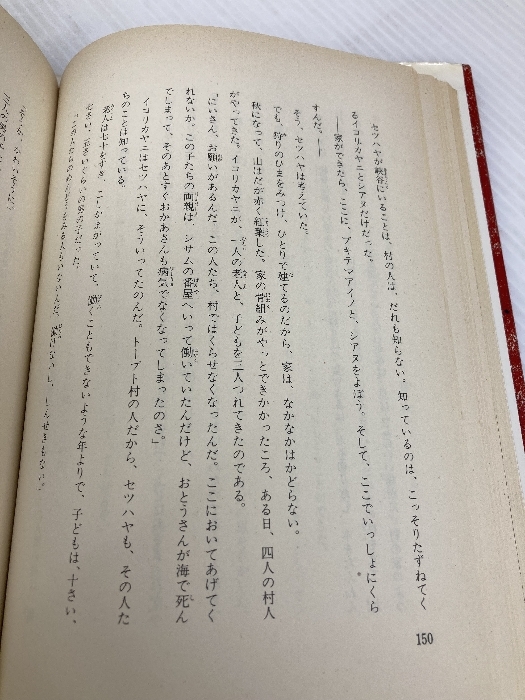 セツハヤが峡谷にいることは、村の人は、だれも知らない。知っているのは、こっそりたずねてく
るイコリカヤニとシアヌだけだった。
――家ができたら、ここに、プキテマアイノと、シアヌをよぼう。そして、ここでいっしょにくら
すんだ。――
そう、セツハヤは考えていた。
でも、狩りのひまをみつけ、ひとりで建てるのだから、家は、なかなかはかどらない。
秋になって、山はだが赤く紅葉した。家の骨組みがやっとできかかったころ、ある日、四人の村人
がやってきた。イコリカヤニが、一人の老人と、子どもを三人つれてきたのである。
「にいさん、お願いがあるんだ。この人たち、村ではくらせなくなったんだ。ここにおいてあげてく
れないか。この子たちの両親は、シサムの番屋へいって働いていたんだけど、おとうさんが海で死ん
でしまって、そのあとすぐおかあさんも病気でなくなってしまったのさ。」
イコリカヤニはセツハヤに、そういってたのんだ。トープト村の人だから、セツハヤも、その人た
ちのことは知っている。
老人は七十をすぎ、こしがまがっていて、働くこともできないような年よりで、子どもは、十さい、
150